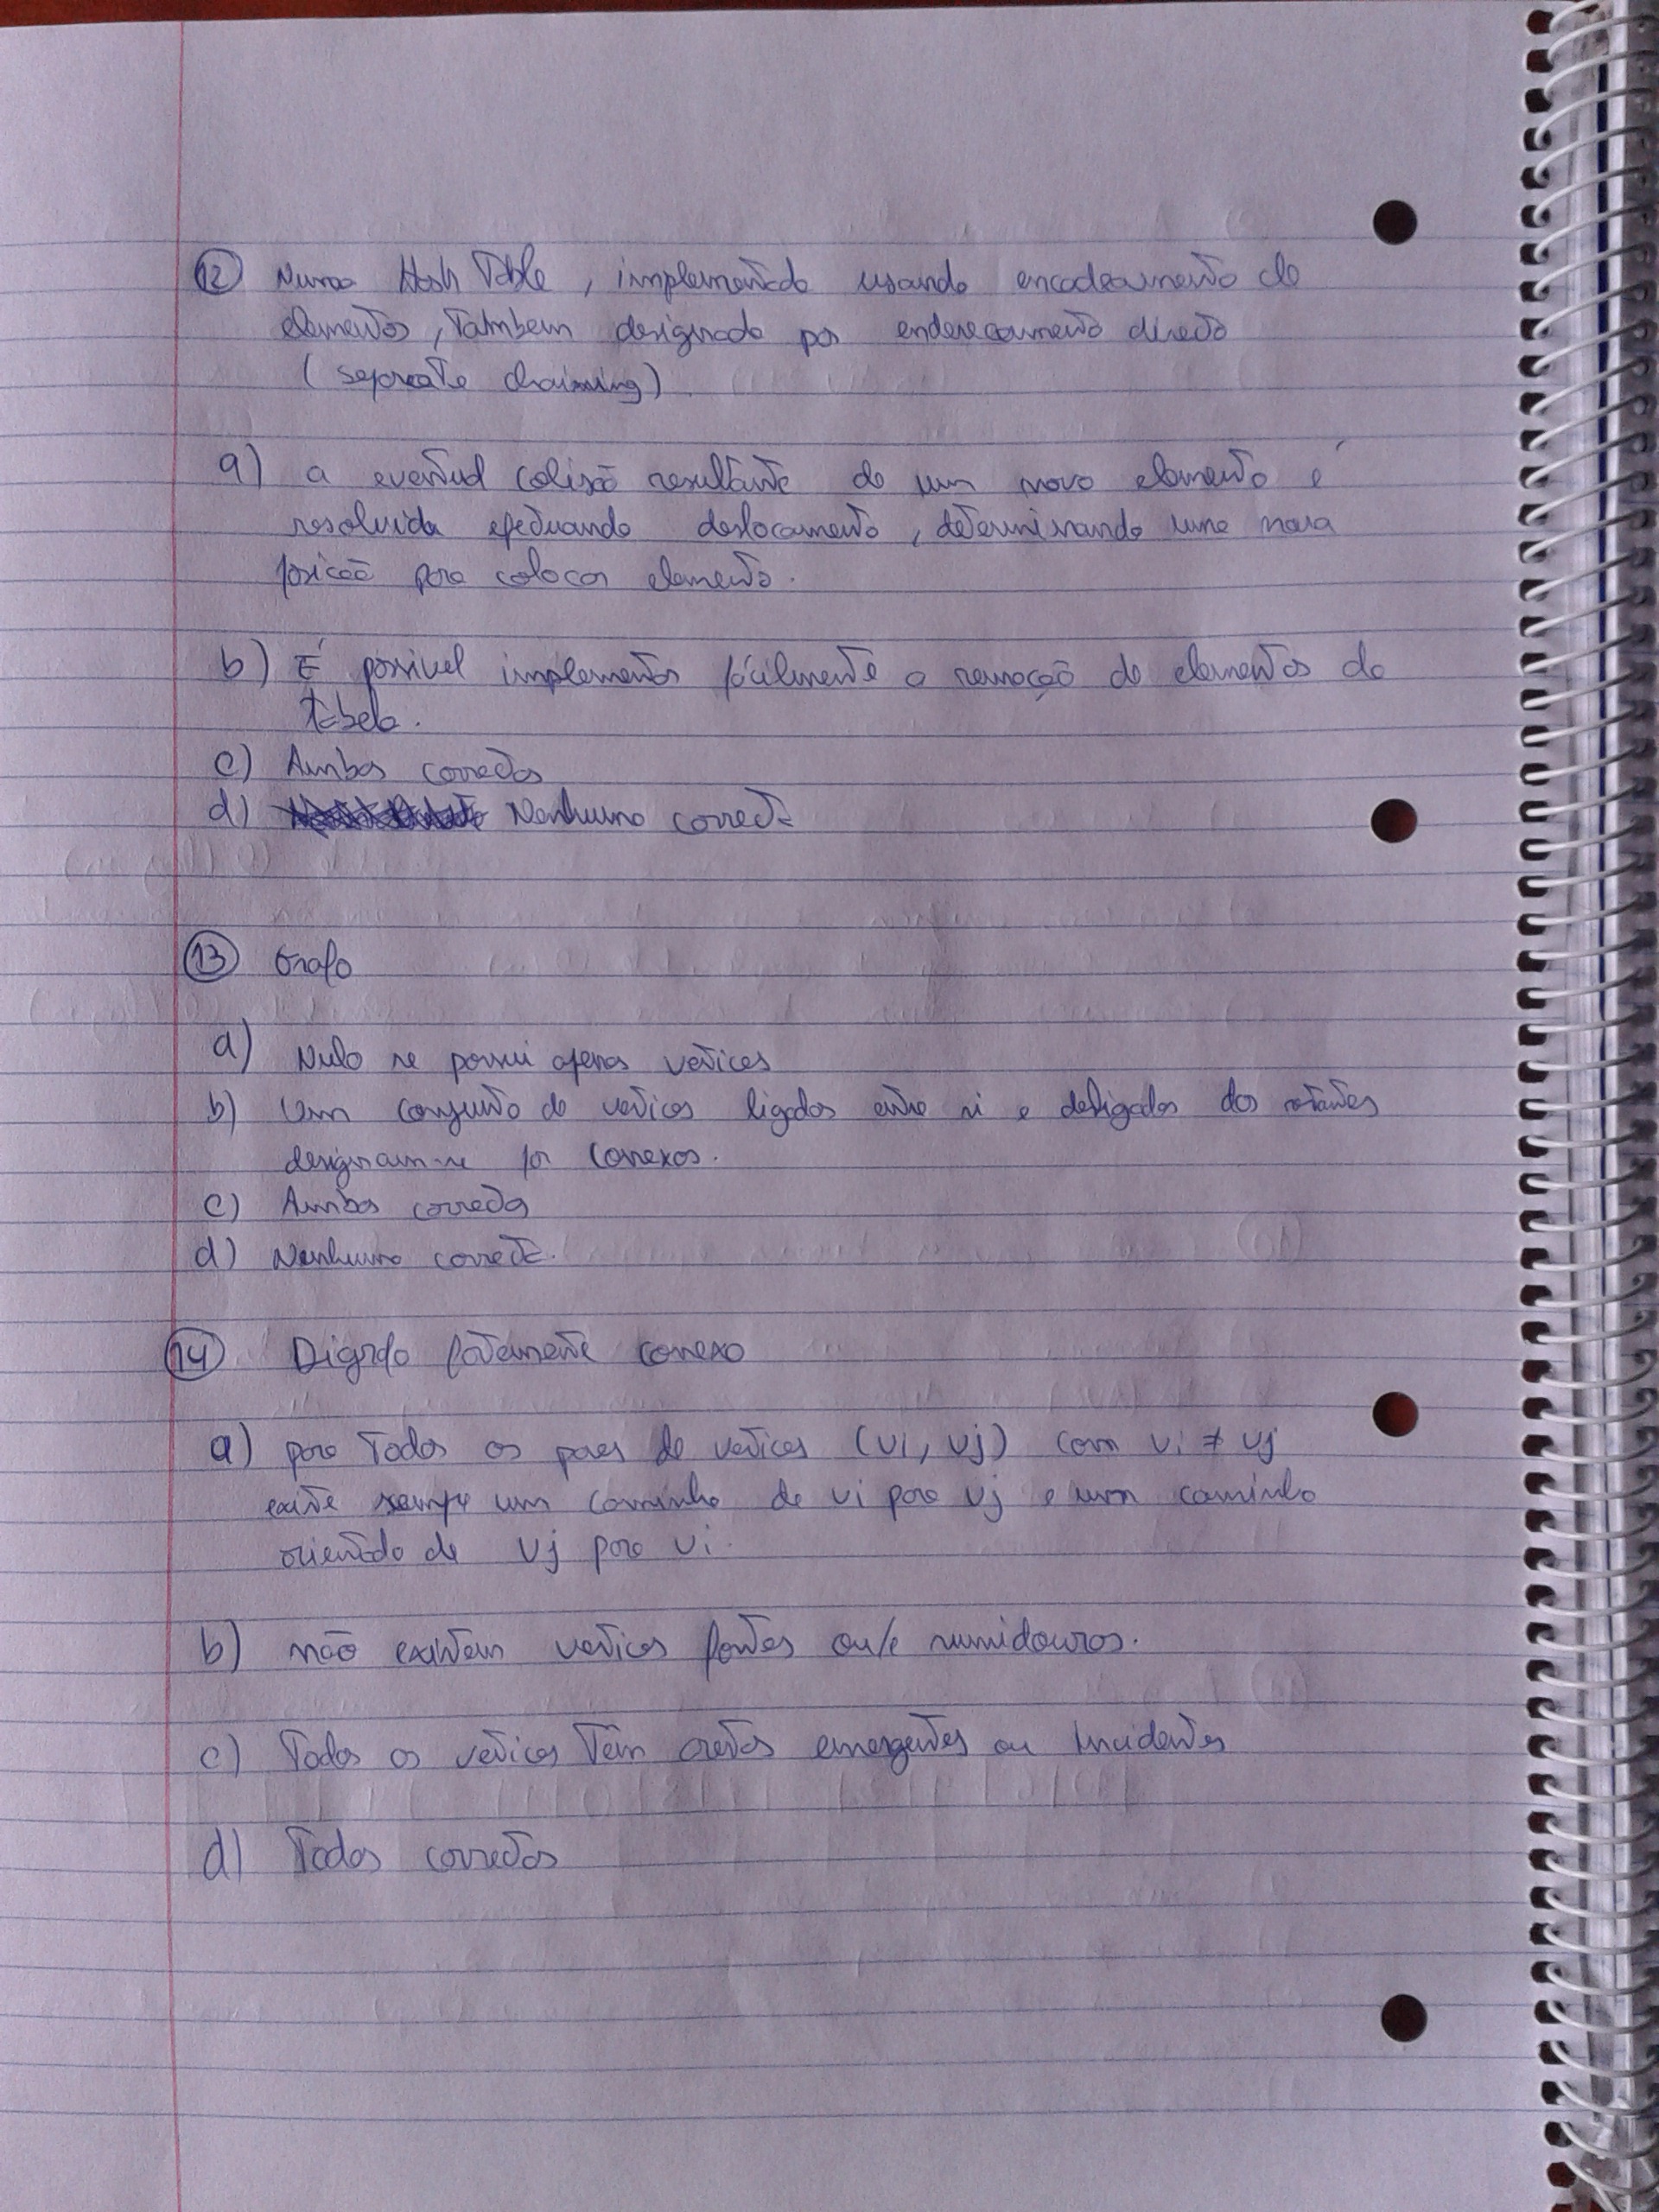 12 Numa Hash Table, implementada usando encadeamento de
elementos, Tambem designada por enderecamento directo
(separate chaining)
a) a eventual colisão resultante de um novo elemento é
resolvida efectuando deslocamento, determinando uma nova
posicão para colocar elemento.
b) É possivel implementar fácilmente a remoção de elementos da
Tabela.
c) Ambas corretas
d) Nenhuma correta
13 Grafo
a) Nulo se possui apenas vertices
b) Um conjunto de vertices ligados entre si e desligados dos restantes
designam-se por Conexos.
c) Ambas corretas
d) Nenhuma correta.
14 Digrafo fortemente conexo
a) para Todos os pares de vertices (vi, vj) com vi ≠ vj
existe sempre um caminho de vi para vj e um caminho
orientado de vj para vi.
b) não existem vertices fontes ou/e sumidouros.
c) Todos os vertices Têm arestas emergentes ou Incidentes
d) Todas corretas